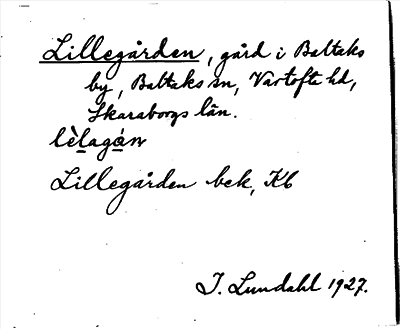 Lillegården, gård i Baltaks
by, Baltaks sn, Vartofta hd,
Skaraborgs län.
lè̱lagá̱n
Lillegården bek, Kb
I. Lundahl 1927.